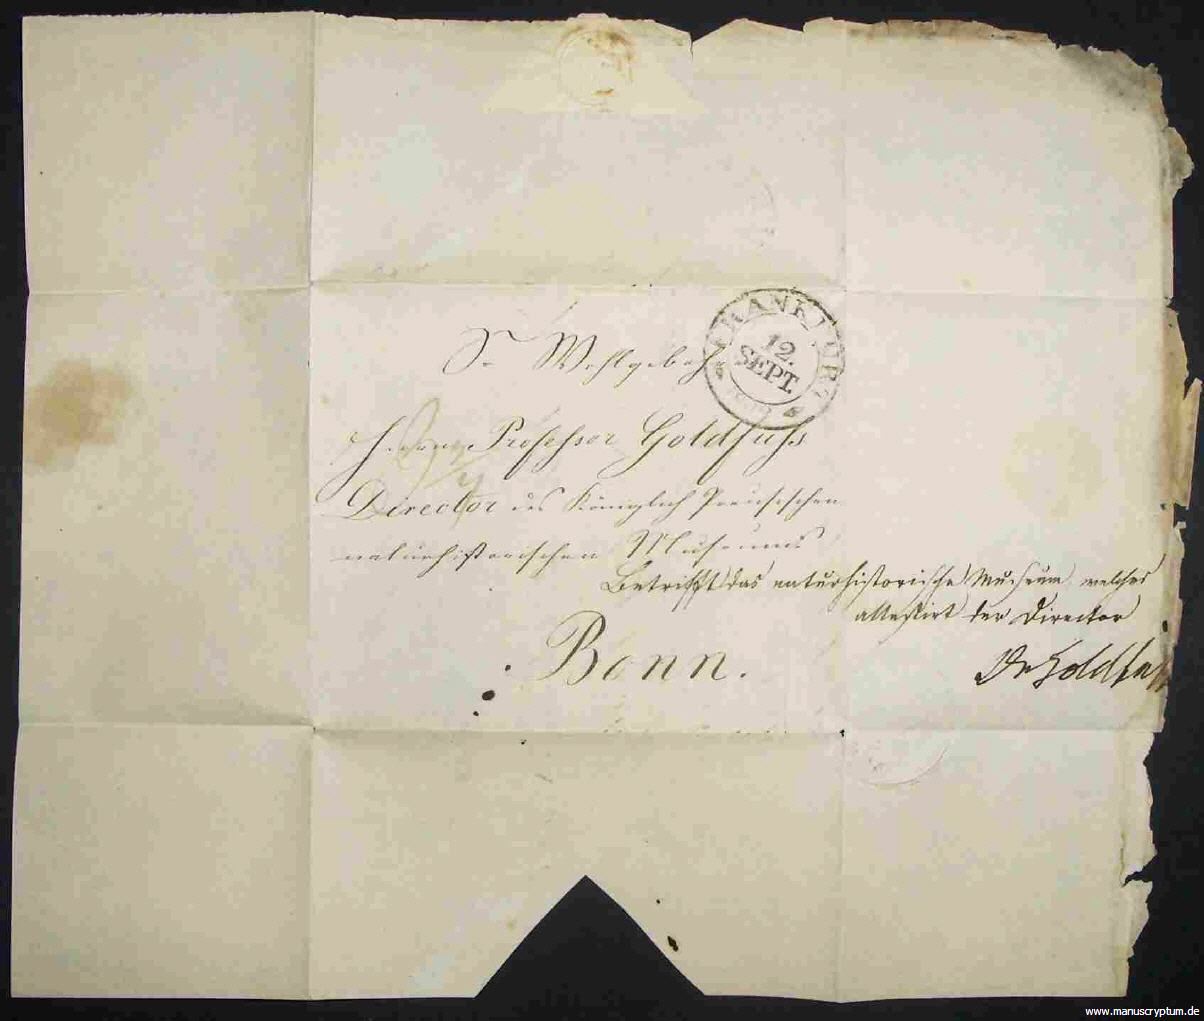 Sr Wohlgeb
FRANKFURT
12.
SEPT.
Herrn Professor Goldfuhs
Director des Königlich Preusischen
naturhistorischen Museums
Betrifft das naturhistorische Museum welches
attestirt der Director
Dr Goldfuß
Bonn.
www.manuscryptum.de